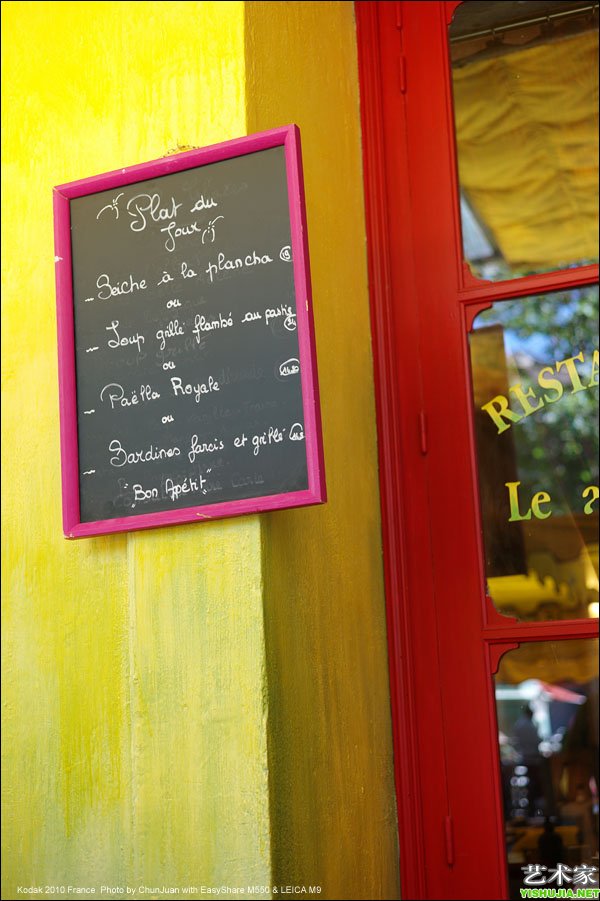 Plat du
Jour
- Seiche à la plancha
ou
- Loup grillé flambé au pastis
ou
- Paëlla Royale
ou
- Sardines farcis et grillé
"Bon Appétit"
RESTA
Le a
Kodak 2010 France Photo by ChunJuan with EasyShare M550 & LEICA M9
艺术家
YISHUJIA.NET